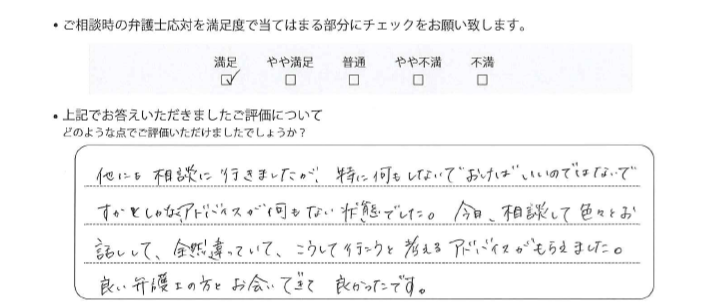 • ご相談時の弁護士応対を満足度で当てはまる部分にチェックをお願い致します。
満足 やや満足 普通 やや不満 不満
☑ ☐ ☐ ☐ ☐
• 上記でお答えいただきましたご評価について
どのような点でご評価いただけましたでしょうか?
他にも相談に行きましたが、特に何もしないでおけばいいのではないで
すかとしかなくアドバイスが何もない状態でした。今日、相談して色々とお
話しして、全然違っていて、こうして行こうと考えるアドバイスがもらえました。
良い弁護士の方とお会いできて良かったです。